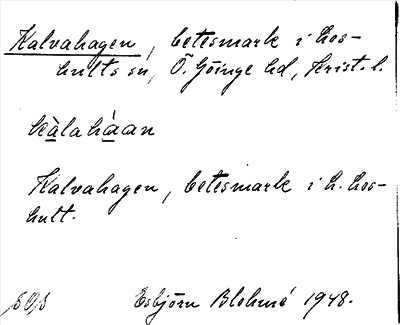 Kalvahagen, betesmark i Los-
hults sn, Ö. Göinge hd, Krist. l.
kàlahàan
Kalvahagen, betesmark i h. Los-
hult.
SOS Esbjörn Blohmé 1948.